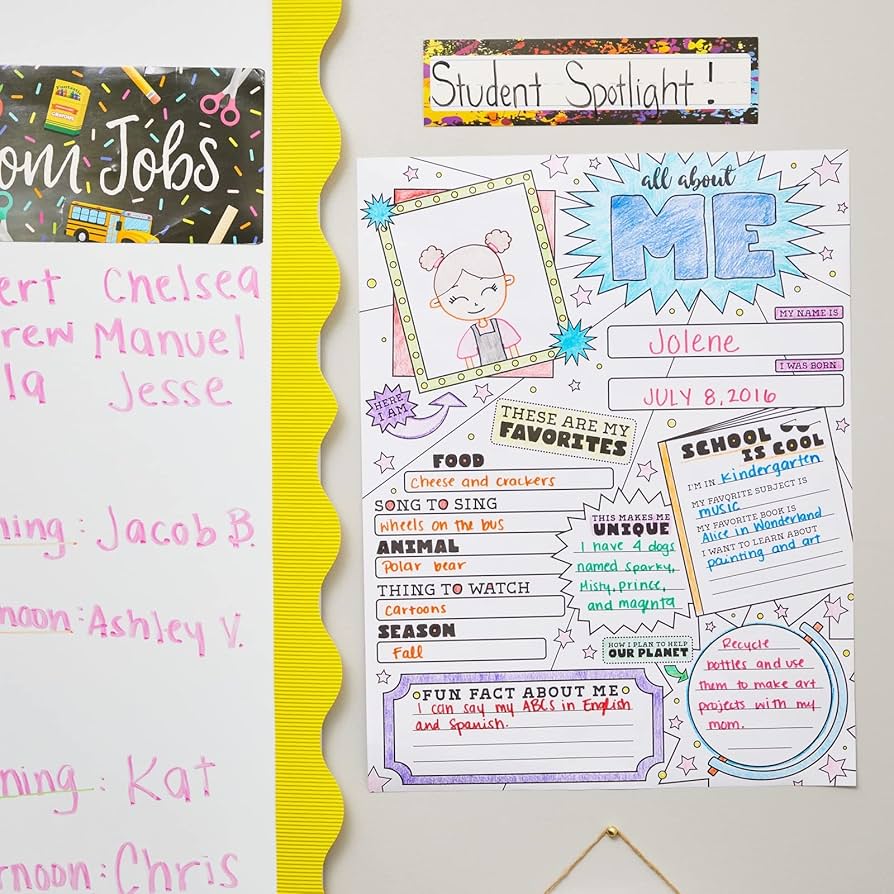 Student Spotlight!
Jobs
Chelsea
Manuel
Jesse
Jacob B.
Ashley V.
: Kat
: Chris
all about
ME
MY NAME IS
Jolene
I WAS BORN
JULY 8, 2016
HERE
I AM
THESE ARE MY
FAVORITES
FOOD
Cheese and crackers
SONG TO SING
Wheels on the bus
ANIMAL
Polar bear
THING TO WATCH
Cartoons
SEASON
Fall
THIS MAKES ME
UNIQUE
I have 4 dogs
named Sparky,
Misty, Prince,
and magenta
SCHOOL
IS COOL
I'M IN Kindergarten
MY FAVORITE SUBJECT IS
music
MY FAVORITE BOOK IS
Alice in Wonderland
I WANT TO LEARN ABOUT
painting and art
HOW I PLAN TO HELP
OUR PLANET
Recycle
bottles and use
them to make art
projects with my
mom.
FUN FACT ABOUT ME
I can say my ABCS in English
and Spanish.